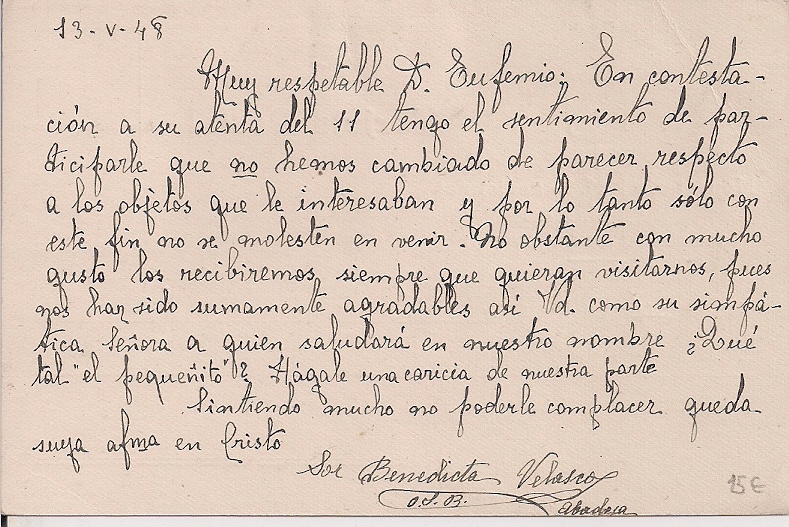 13-V-48
Muy respetable D. Eufemio: En contesta-
ción a su atenta del 11 tengo el sentimiento de par-
ticiparle que no hemos cambiado de parecer respecto
a los objetos que le interesaban y por lo tanto sólo con
este fin no se molesten en venir. No obstante con mucho
gusto los recibiremos siempre que quieran visitarnos, pues
nos han sido sumamente agradables así Vd. como su simpá-
tica Señora a quien saludará en nuestro nombre ¿Qué
tal "el pequeñito"? Hágale una caricia de nuestra parte
Sintiendo mucho no poderle complacer queda
suya afma en Cristo
Sor Benedicta Velasco
O.S.B. Abadesa
15€